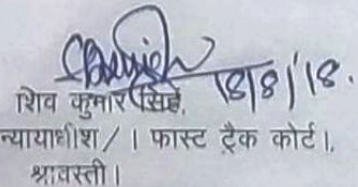 18/8/18.
शिव कुमार सिंह,
न्यायाधीश/ । फास्ट ट्रैक कोर्ट।,
श्रावस्ती।